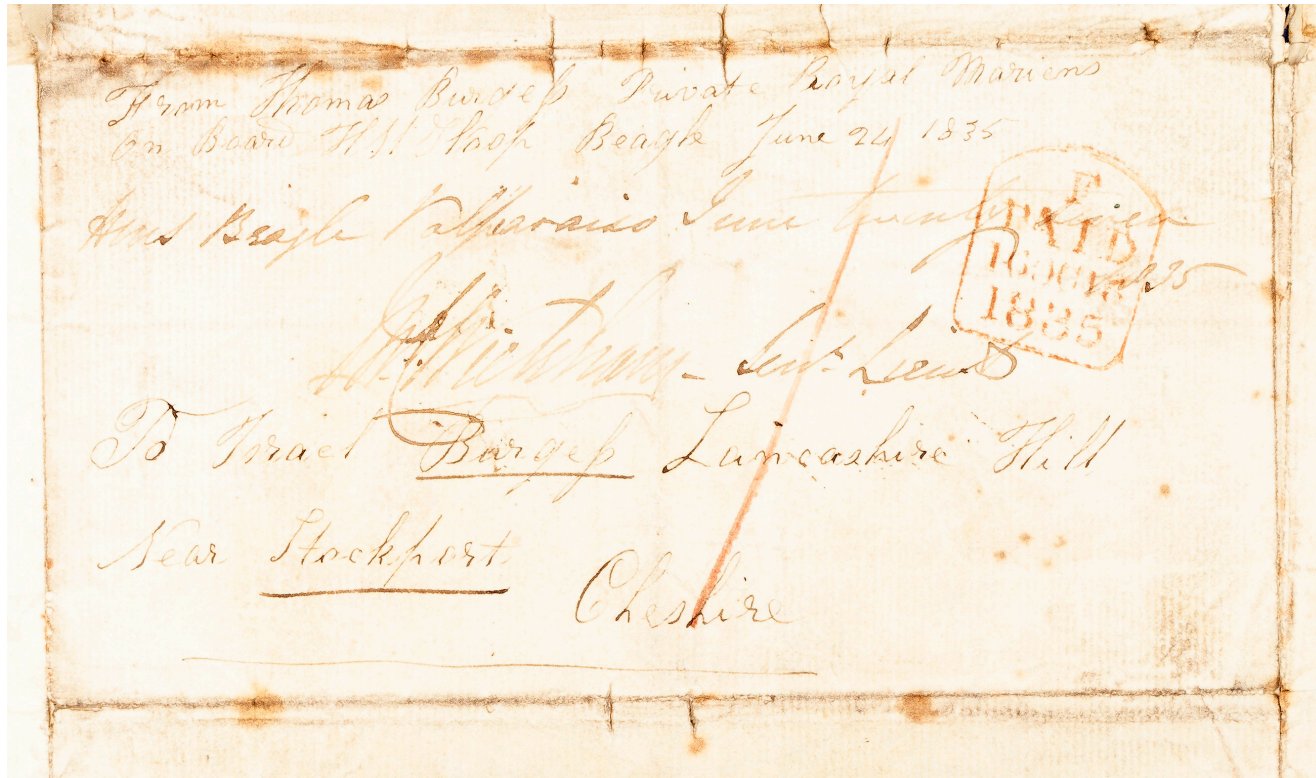 From Thomas Burgeſs Private Royal Mariens
on Board H M Sloop Beagle June 24 1835
Hms Beagle Valparaiso June twenty seven
1835
J C Wickham - Senr. Lieut
To Israel Burgeſs Lancashire Hill
Near Stockport
Cheshire
F
PAID
1835